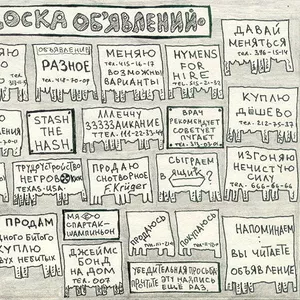 ДОСКА ОБЪЯВЛЕНИЙ
ОБЪЯВЛЕНИЕ
РАЗНОЕ
ТЕЛ. 418-70-09
МЕНЯЮ
ТЕЛ. 415-16-17
ВОЗМОЖНЫ
ВАРИАНТЫ
HYMENS
FOR
HIRE
ДАВАЙ
МЕНЯТЬСЯ
ТЕЛ. 386-15-14
STASH
THE
HASH
АЛЛЕЧЧУ
ЗЗЗЗЗАИКАНИЕ
ВРАЧ
РЕКОМЕНДУЕТ
СОВЕТУЕТ
ПУГАЕТ
КУПЛЮ
ДЁШЕВО
ТРУДОУСТРОЙСТВО
НЕГРОВ
TEXAS USA
ПРОДАЮ
СНОТВОРНОЕ
F. Krüger
СЫГРАЕМ
В ЯЩИК?
ИЗГОНЯЮ
НЕЧИСТУЮ
СИЛУ
ТЕЛ. 666-66-66
ПРОДАМ
ОДНОГО БИТОГО
КУПЛЮ
ДВУХ НЕБИТЫХ
СПАРТАК-
ШАМПИНЬОН
ДЖЕЙМС
БОНД
НА ДОМ
ТЕЛ. 007
ПРОДАЮСЬ
ПОКУПАЮСЬ
УБЕДИТЕЛЬНАЯ ПРОСЬБА
ПРОЧТИТЕ ЭТУ НАДПИСЬ
ЕЩЁ РАЗ.
НАПОМИНАЕМ:
ВЫ ЧИТАЕТЕ
ОБЪЯВЛЕНИЕ